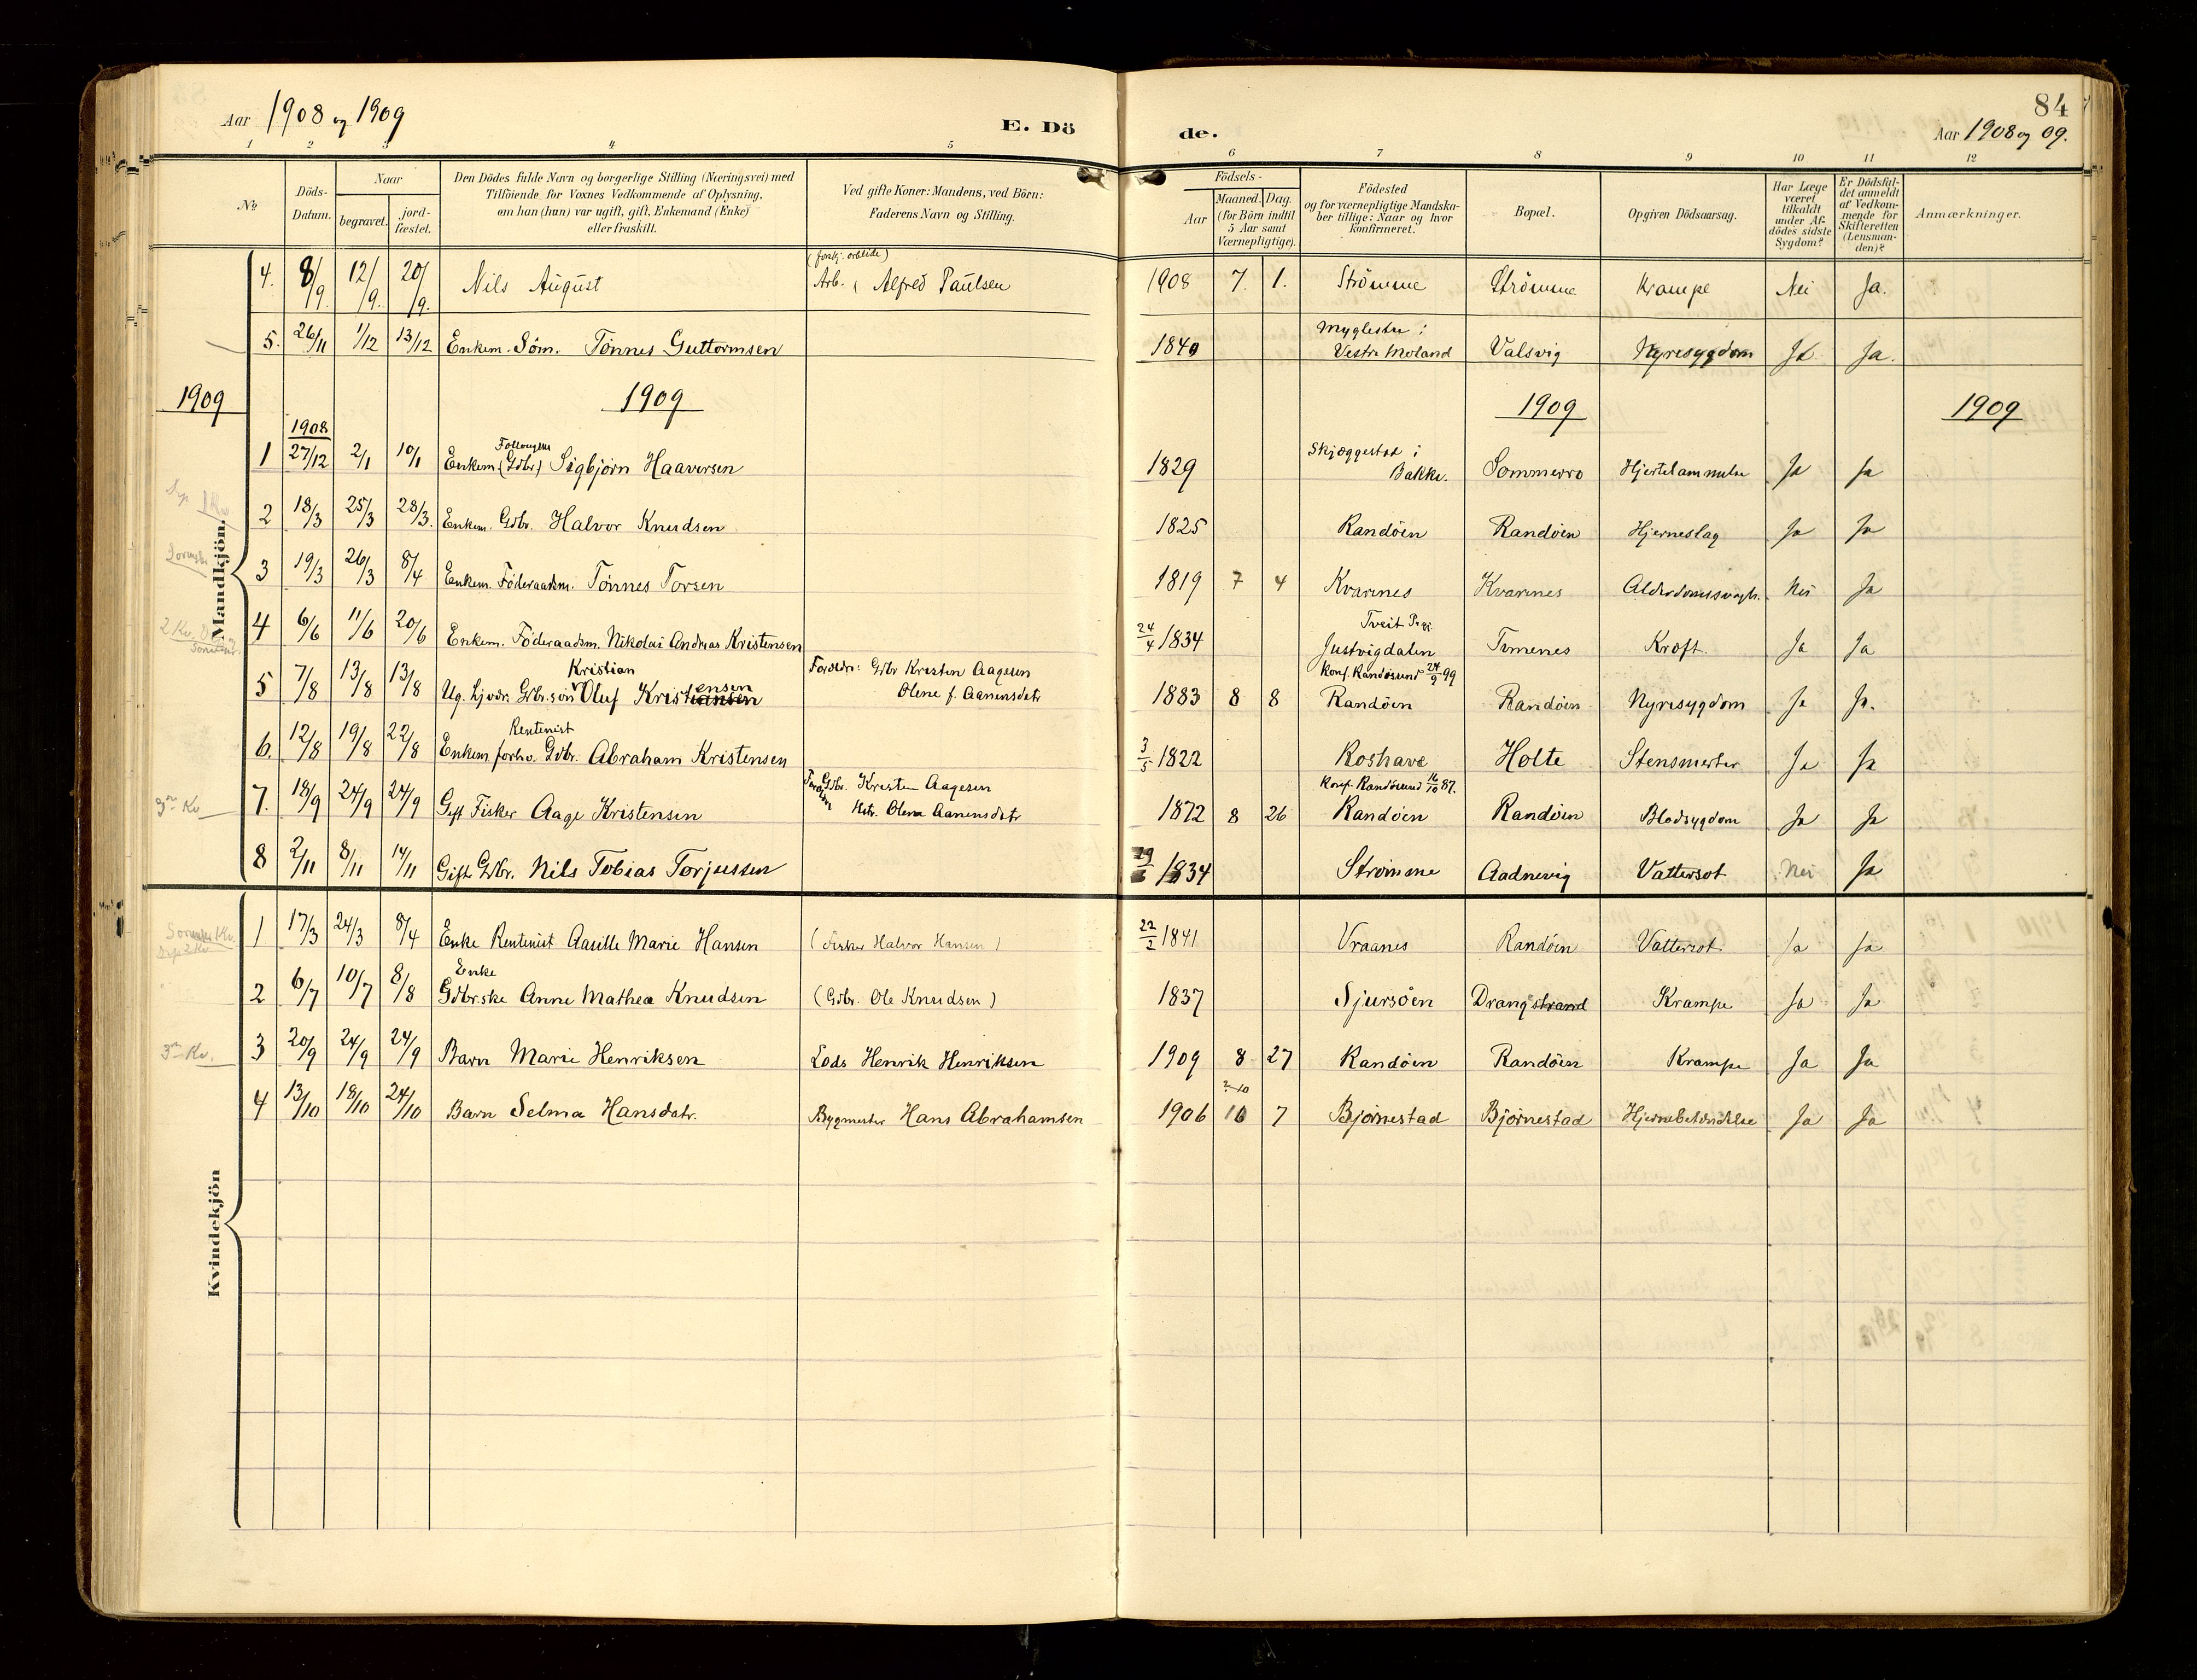 Aar 1908 og 1909
E. Dö
de.
84
Aar 1908 og 09.
1 2 3 4 5 6 7 8 9 10 11 12
No
Döds-
Datum.
Naar
begravet.
jord-
fæstet.
Den Dödes fulde Navn og borgerlige Stilling (Næringsvei) med
Tilföiende for Voxnes Vedkommende af Oplysning,
om han (hun) var ugift, gift, Enkemand (Enke)
eller fraskilt.
Ved gifte Koner: Mandens, ved Börn:
Faderens Navn og Stilling.
Födsels-
Aar
Maaned. Dag.
(for Börn indtil
5 Aar samt
Værnepligtige).
Födested
og for værnepligtige Mandska-
ber tillige: Naar og hvor
konfirmeret.
Bopæl.
Opgiven Dödsaarsag.
Har Læge
været
tilkaldt
under Af-
dödes sidste
Sygdom?
Er Dödsfal-
det anmeldt
af Vedkom-
mende for
Skifteretten
(Lensman-
den)?
Anmærkninger.
4. 8/9. 12/9. 20/9. Nils August Arb. Alfred Paulsen 1908 7. 1. Strömme Strömme Krampe Nei Ja.
5. 26/11 1/12 13/12 Enkem. Söm. Tönnes Guttormsen 1840 Myglestru i
Vestre Moland Valsvig Nyresygdom Ja Ja.
1909 1909 1909 1909
1908
1 27/12 2/1 10/1 Enkem (Gdbr) Sigbjörn Haaversen 1829 Skjæggestad i
Bakke. Sommerro Hjertelammelse Ja Ja
Mandkjön.
2 18/3 25/3 28/3. Enkem. Gdbr. Halvor Knudsen 1825 Randöen Randöen Hjerneslag Ja Ja
3 19/3 26/3 8/4 Enkem. Föderaadsm. Tönnes Torsen 1819 7 4 Kvarnes Kvarnes Alderdomssvagh. Nei Ja
4 6/6 11/6 20/6 Enkem. Föderaadsm. Nikolai Andreas Kristensen 24/4 1834 Tveit
Justvigdalen Timenes Kræft. Ja Ja
Kristian
5 7/8 13/8 13/8 Ug. Gdbr. sön Oluf Kristensen Foreldr: Gdbr Kristen Aagesen
Olene f. Aanensdatr 1883 8 8 Konf. Randösund 24/9 99
Randöen Randöen Nyresygdom Ja Ja.
Rentenist
6. 12/8 19/8 22/8 Enkem. forhv. Gdbr. Abraham Kristensen 3/5 1822 Roshave Holte Stensmerter Ja Ja
7. 18/9 24/9 24/9 Gift Fisker Aage Kristensen Gdbr. Kristen Aagesen
Hstr. Olene Aanensdatr 1872 8 26 Konf. Randösund 16/10 87.
Randöen Randöen Blodsygdom Ja Ja
3die Kv
8 2/11 8/11 14/11 Gift Gdbr. Nils Tobias Torjussen 1834 Strömme Aadnevig Vattersot Nei Ja
1 17/3 24/3 8/4 Enke Rentenist Aasille Marie Hansen (Fisker Halvor Hansen) 22/2 1841 Vraanes Randöen Vattersot Ja Ja
Enke
2 6/7 10/7 8/8 Gdbr.ske Anne Mathea Knudsen (Gdbr. Ole Knudsen) 1837 Sjursöen Drangstrand Krampe Ja Ja
3die Kv.
3 20/9 24/9 24/9 Barn Marie Henriksen Lods Henrik Henriksen 1909 8 27 Randöen Randöen Krampe Ja Ja
4 13/10 18/10 24/10 Barn Selma Hansdatr. Bygmester Hans Abrahamsen 1906 10 7 Björnestad Björnestad Hjernebetændelse Ja Ja
Kvindekjön